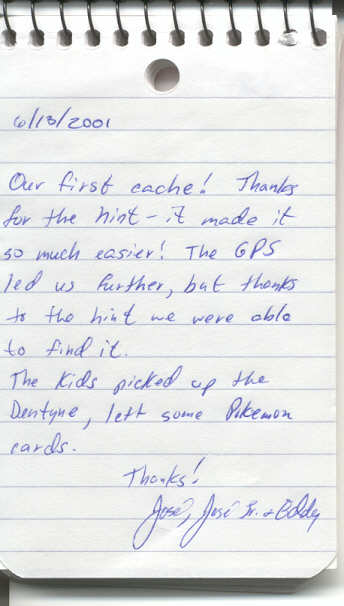 6/13/2001
Our first cache! Thanks
for the hint - it made it
so much easier! The GPS
led us further, but thanks
to the hint we were able
to find it.
The Kids picked up the
Dentyne, left some Pokemon
cards.
Thanks!
José, José Jr. + Eddy